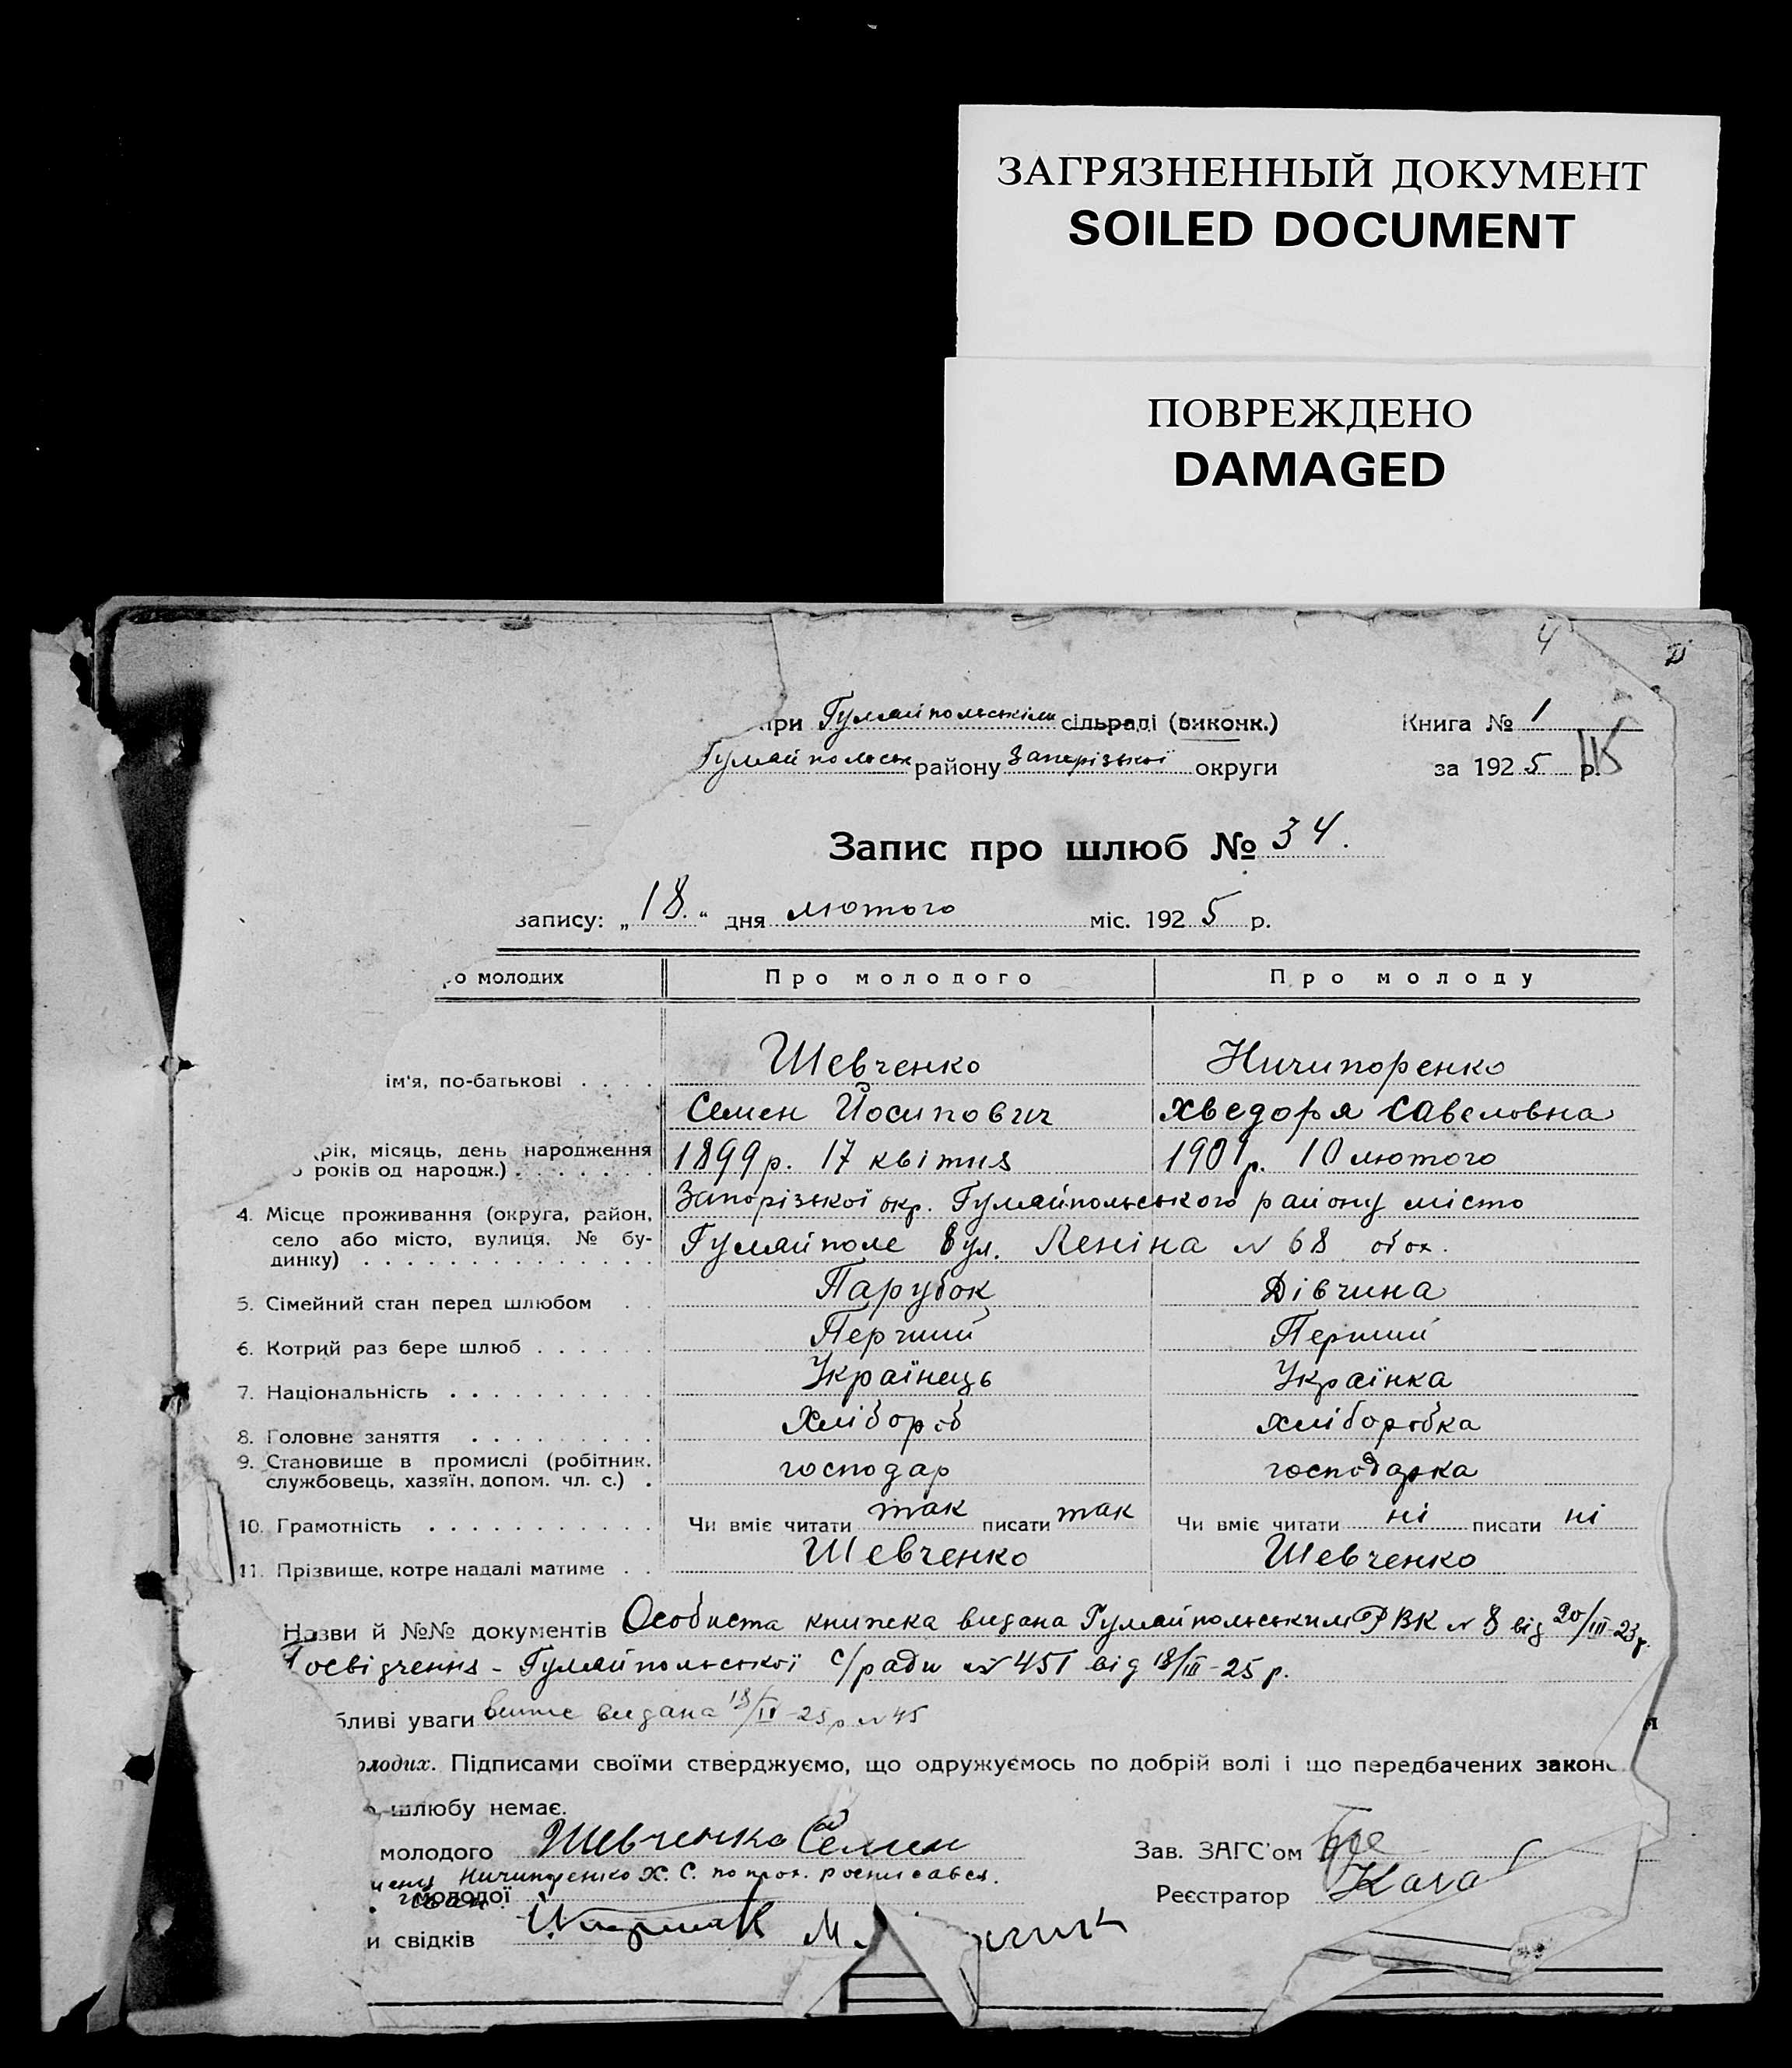 ЗАГРЯЗНЕННЫЙ ДОКУМЕНТ
SOILED DOCUMENT
ПОВРЕЖДЕНО
DAMAGED
4
при Гуляйпольськім сільраді (виконк.) Книга № 1
Гуляйпольськ району Запорізької округи за 1925 р.
Запис про шлюб № 34.
запису: „18.“ дня лютого міс. 1925 р.
ро молодих Про молодого Про молоду
Шевченко Ничипоренко
ім'я, по-батькові . . . .
Семен Йосипович Хведоря Савеловна
рік, місяць, день народження
років од народж.) 1899 р. 17 квітня 1901 р. 10 лютого
4. Місце проживання (округа, район, Запорізької окр. Гуляйпольського району місто
село або місто, вулиця, № бу-
динку) Гуляйполе вул. Леніна № 68 обох.
5. Сімейний стан перед шлюбом Парубок Дівчина
6. Котрий раз бере шлюб Перчий Перший
7. Національність Українець Українка
8. Головне заняття Хлібороб хліборобка
9. Становище в промислі (робітник,
службовець, хазяїн, допом. чл. с.) господар господарка
10. Грамотність Чи вміє читати так писати так Чи вміє читати ні писати ні
11. Прізвище, котре надалі матиме Шевченко Шевченко
Назви й №№ документів Особиста книжка видана Гуляйпольським РВК № 8 від 20/III-23р.
Посвідчення - Гуляйпольської с/ради № 451 від 18/III-25 р.
бливі уваги видана 18/II-25 р № 45
олодих. Підписами своїми стверджуємо, що одружуємось по добрій волі і що передбачених законо
шлюбу немає.
молодого Шевченко Семен Зав. ЗАГС'ом
Ничипоренко Х. С. по прох. росписався.
молодої Реєстратор
и свідків